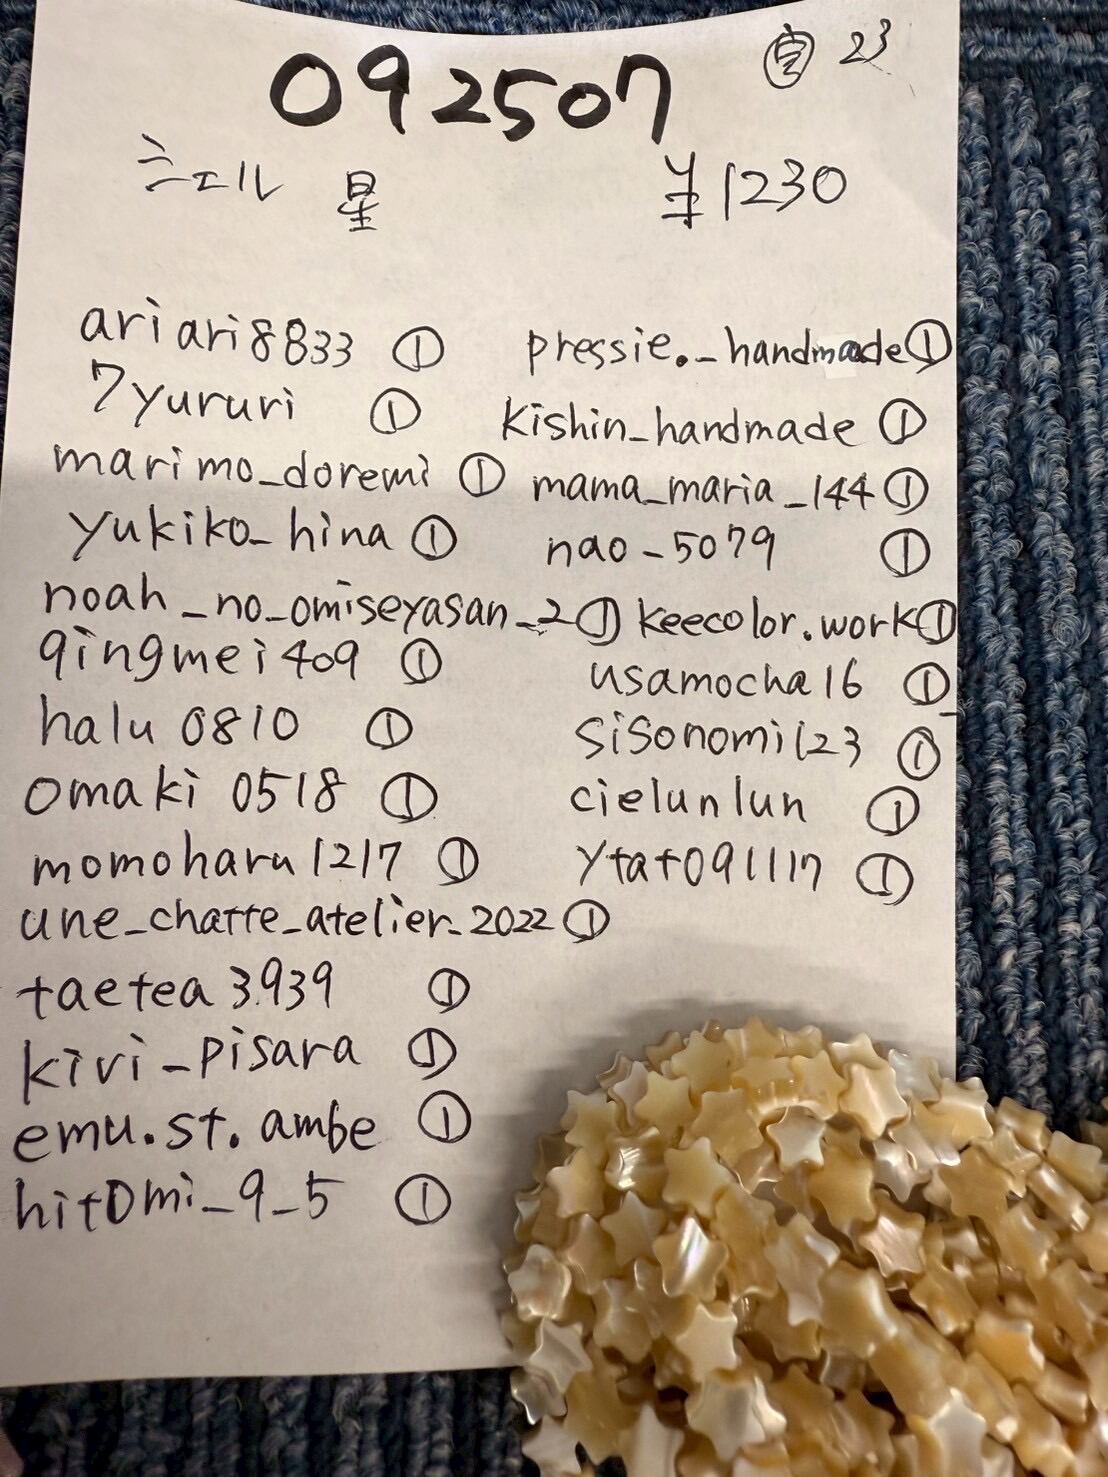 092507
23
シェル 星 ¥1230
ariari8833 ①
7yururi ①
marimo_doremi ①
yukiko_hina ①
noah_no_omiseyasan_2 ①
qingmei409 ①
halu0810 ①
omaki0518 ①
momoharu1217 ①
une_chatte_atelier_2022 ①
taetea3939 ①
kivi_pisara ①
emu.st.ambe ①
hit0mi_9_5 ①
pressie._handmade ①
kishin_handmade ①
mama_maria_144 ①
nao_5079 ①
keecolor.work ①
usamocha16 ①
sisonomi123 ①
cielunlun ①
ytat091117 ①